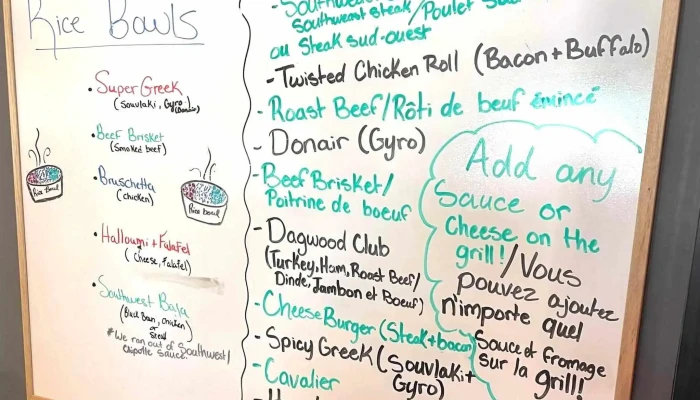 Rice Bowls
• Super Greek
(Souvlaki, Gyro
(Donair)
• Beef Brisket
(Smoked beef)
• Bruschetta
(chicken)
• Halloumi + Falafel
(Cheese, Falafel)
• Southwest Baja
(Black Bean, Chicken
or
Steak
* We ran out of Southwest/
Chipotle Sauce.
Rice Bowl
Rice bowl
Southwest steak/Poulet
ou Steak sud-ouest
- Twisted Chicken Roll (Bacon + Buffalo)
- Roast Beef/Rôti de beuf émincé
- Donair (Gyro)
- Beef Brisket/
Poitrine de boeuf
- Dagwood Club
(Turkey, Ham, Roast Beef/
Dinde, Jambon et Boeuf)
- Cheese Burger (Steak + bacon)
- Spicy Greek (Souvlaki +
Gyro)
- Cavalier
Add any
Sauce or
Cheese on the
grill!/Vous
pouvez ajoutez
n'importe quel
Sauce et fromage
sur la grill!